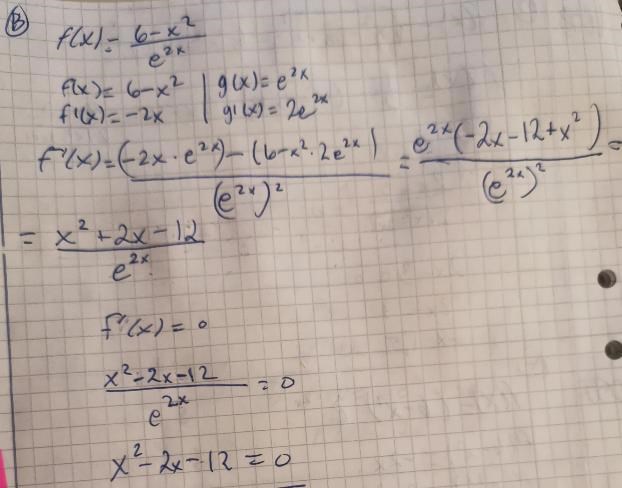 B
f(x) = (6-x²)/(e^(2x))
f(x) = 6-x² | g(x) = e^(2x)
f'(x) = -2x | g'(x) = 2e^(2x)
f'(x) = ((-2x · e^(2x)) - (6-x² · 2e^(2x)))/((e^(2x))²) = (e^(2x)(-2x-12+x²))/((e^(2x))²) =
= (x²+2x-12)/(e^(2x))
f'(x) = 0
(x²-2x-12)/(e^(2x)) = 0
x²-2x-12 = 0